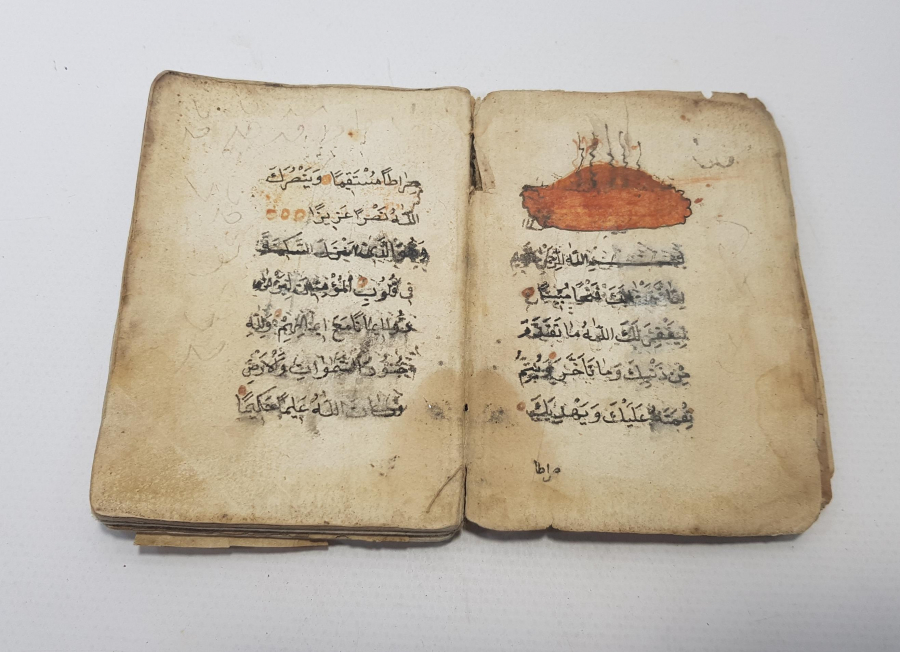 بسم الله الرحمن الرحيم
إنا فتحنا لك فتحا مبينا
ليغفر لك الله ما تقدم
من ذنبك وما تأخر ويتم
نعمته عليك ويهديك
صراطا
صراطا مستقيما وينصرك
الله نصرا عزيزا
هو الذي أنزل السكينة
في قلوب المؤمنين ليزدادوا
إيمانا مع إيمانهم ولله
جنود السموات والأرض
وكان الله عليما حكيما